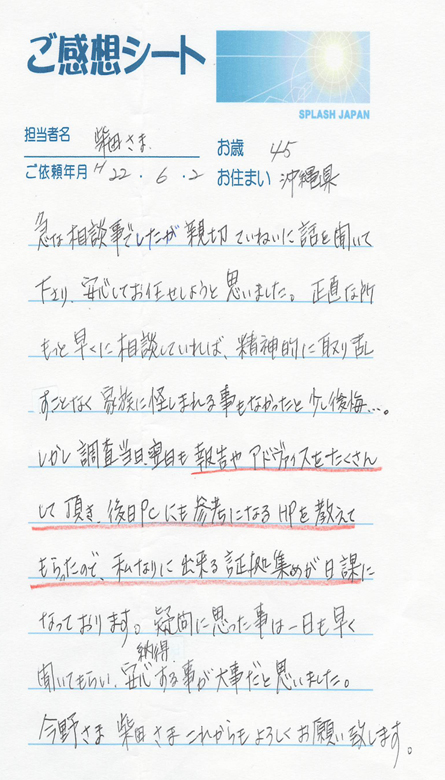 ご感想シート
SPLASH JAPAN
担当者名 柴田さま
お歳 45
ご依頼年月 H22.6.2
お住まい 沖縄県
急な相談事でしたが親切ていねいに話を聞いて
下さり、安心してお任せしようと思いました。正直な所
もっと早くに相談していれば、精神的に取り乱し
すことなく家族に怪しまれる事もなかったと少し後悔…。
しかし調査当日、翌日も報告やアドヴァイスをたくさん
して頂き、後日PCにも参考になるHPを教えて
もらったので、私なりに出来る証拠集めが日課に
なっております。疑問に思った事は一日も早く
聞いてもらい、納得 安心する事が大事だと思いました。
今野さま 柴田さま これからもよろしくお願い致します。